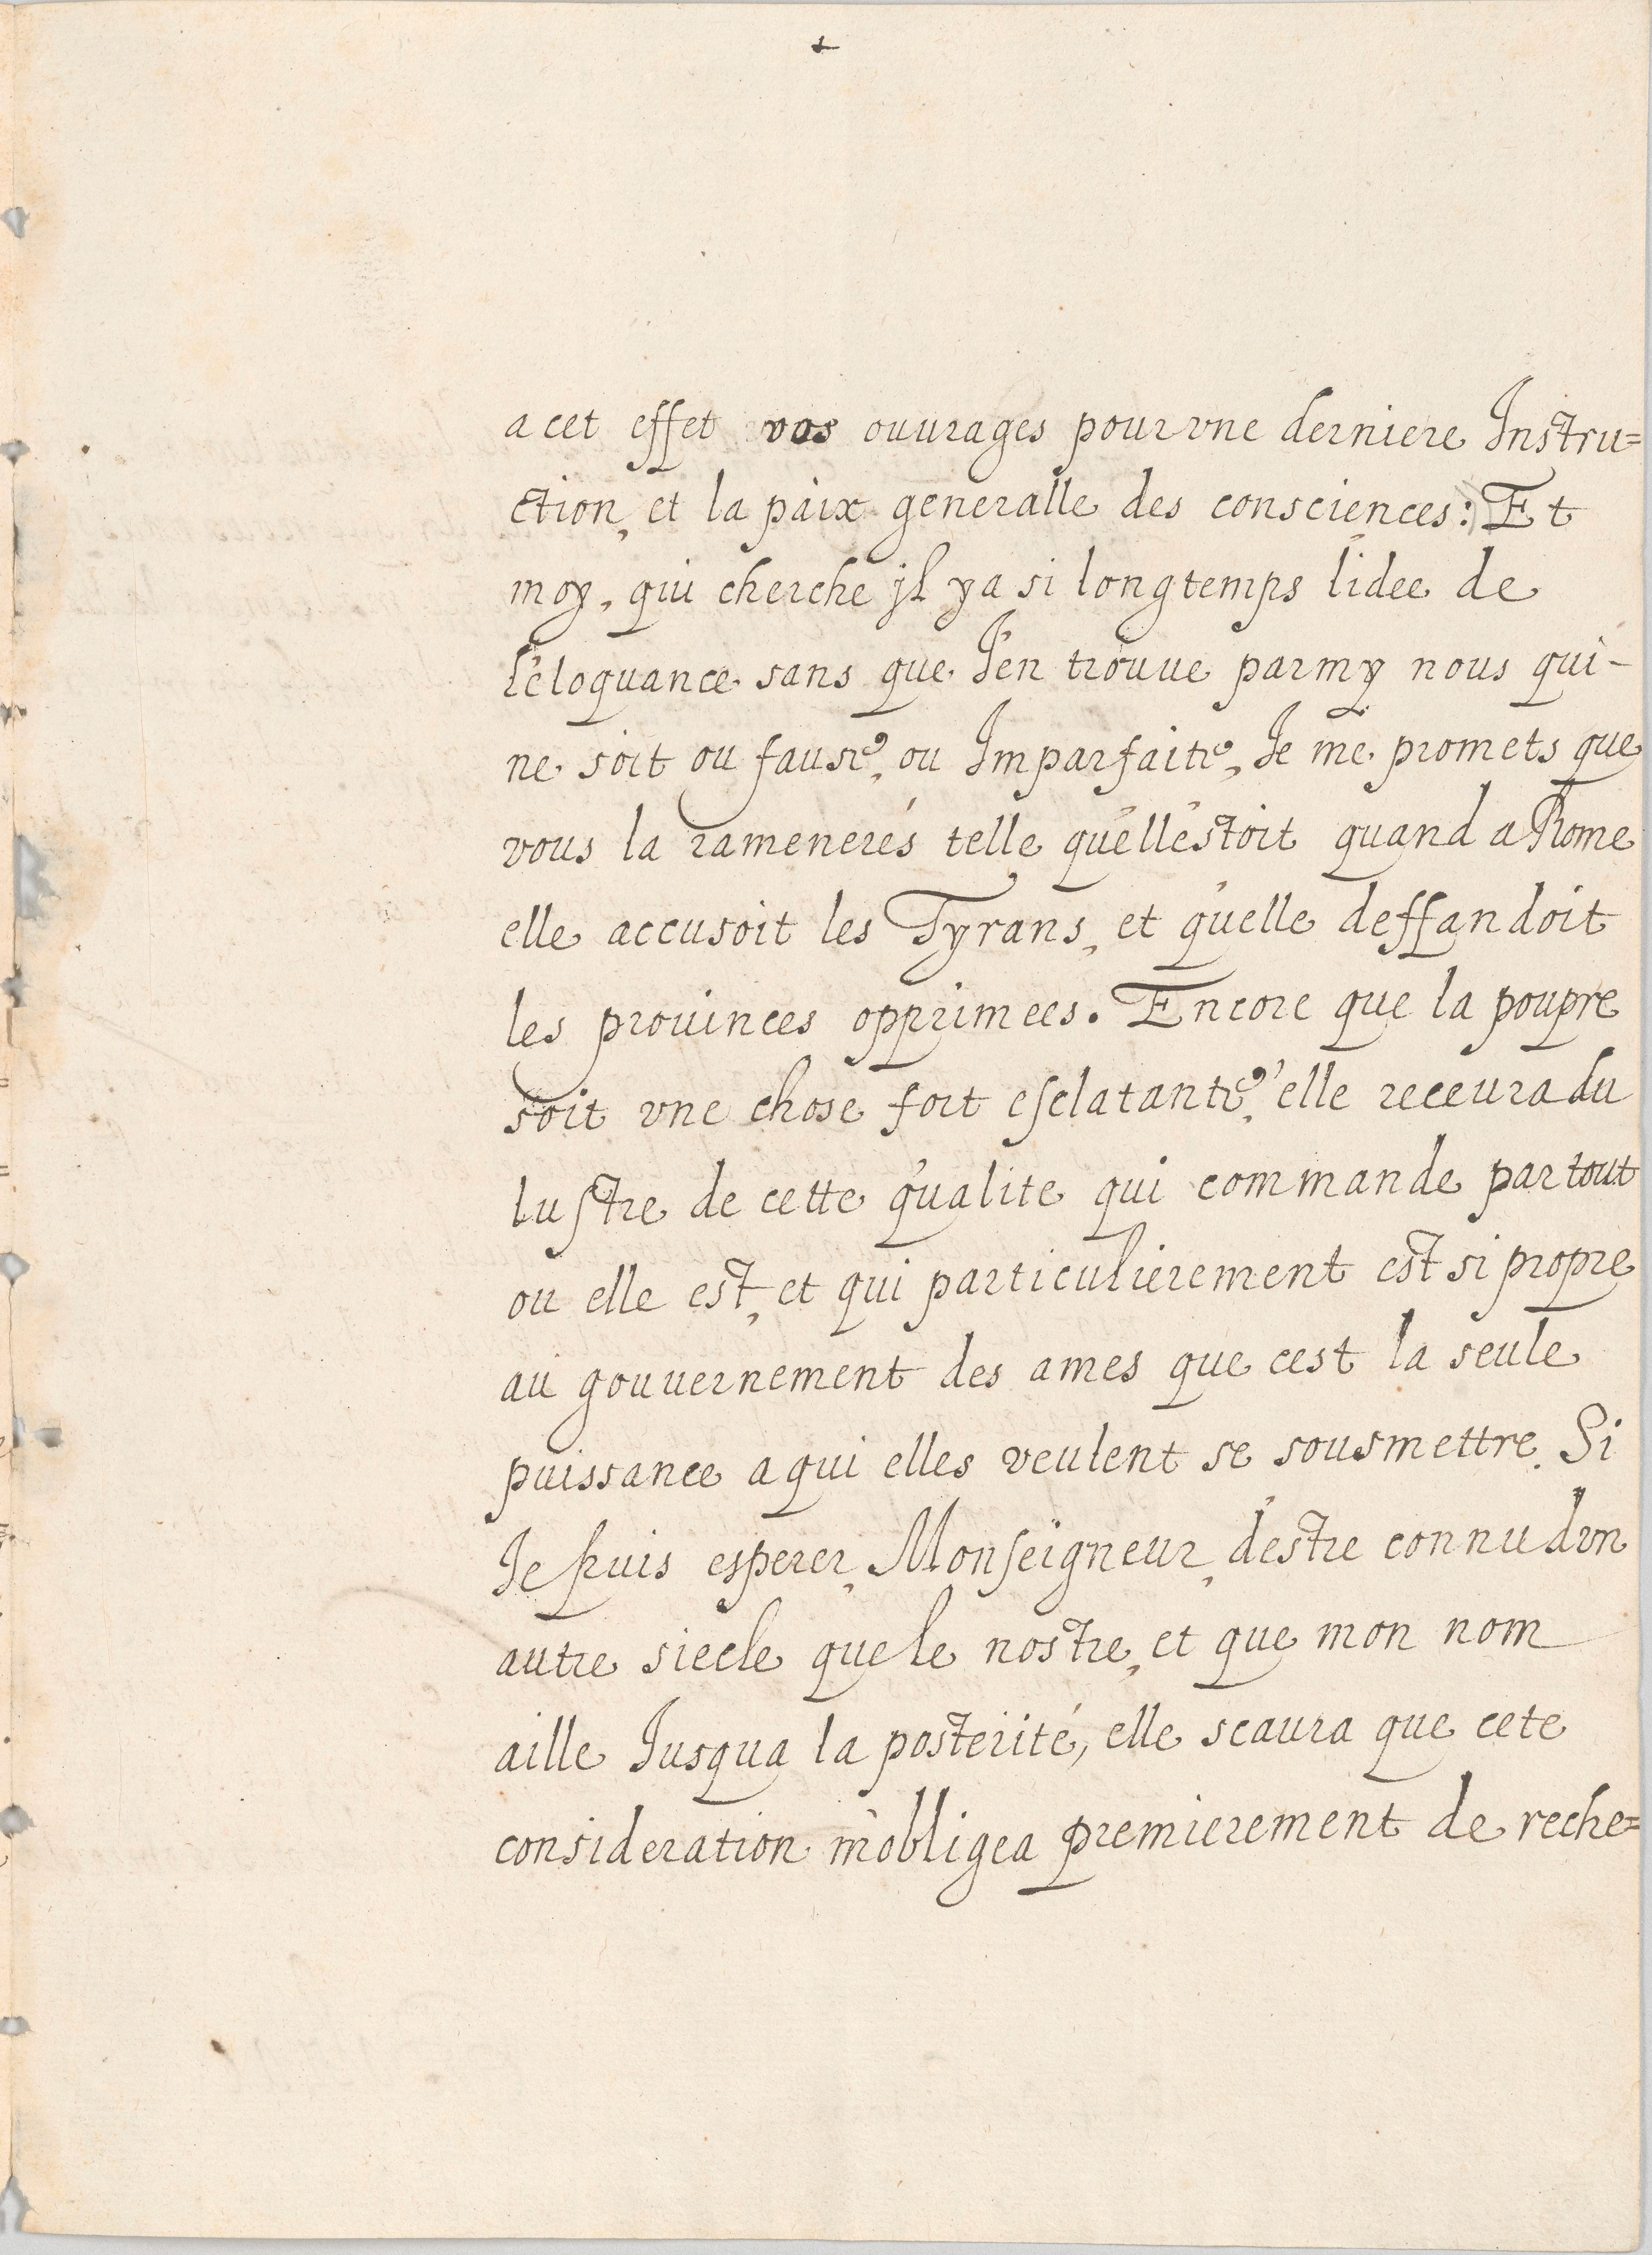 a cet effet vos ouurages pour vne derniere Instru=
ction, et la paix generalle des consciences: Et
moy, qui cherche jl y a si longtemps lidee de
l'eloquance sans que J'en trouue parmy nous qui-
ne soit ou fause, ou Imparfaite, Je me promets que
vous la ramenerés telle qu'ellestoit quand a Rome
elle accusoit les Tyrans, et qu'elle deffandoit
les prouinces opprimees. Encore que la poupre
soit vne chose fort esclatante, elle receura du
lustre de cette qualite qui commande partout
ou elle est, et qui particulierement est si propre
au gouuernement des ames que cest la seule
puissance a qui elles veulent se sousmettre. Si
Je puis esperer, Monseigneur, d'estre connu dvn
autre siecle que le nostre, et que mon nom
aille Jusqua la posterité, elle scaura que cete
consideration m'obligea premierement de reche=